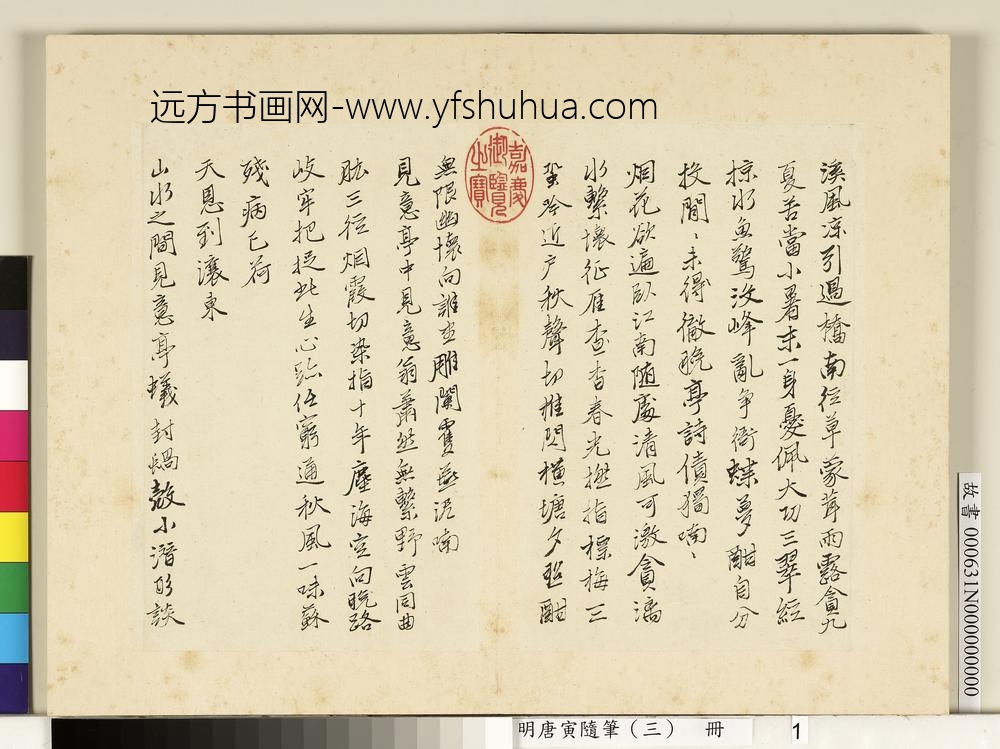 远方书画网-www.yfshuhua.com
嘉慶御覽之寶
溪風凉引過橋南徑草蒙茸雨露貪九
夏苦當小暑末一身憂佩大功三翠經
掠水魚驚汝峰亂爭衙蝶夢酣自分
投閒閒未得徹晚亭詩債獨喃喃
烟花欲遍臥江南随處清風可激貪漓
水繫懷征雁查杳春光撚指標梅三
蛩吟近戶秋聲切推門橫塘夕照酣
無限幽懷向誰
見意亭中見意翁蕭然無繫野雲同曲
肱三徑烟霞切染指十年塵海空向晚路
岐牢把捉此生心跡任窮通秋風一味蘇
殘病已荷
天恩到瀼東
山水之間見意亭蟻封蝸小潛談
故書 000631N000000000
明唐寅隨筆（三） 冊
1